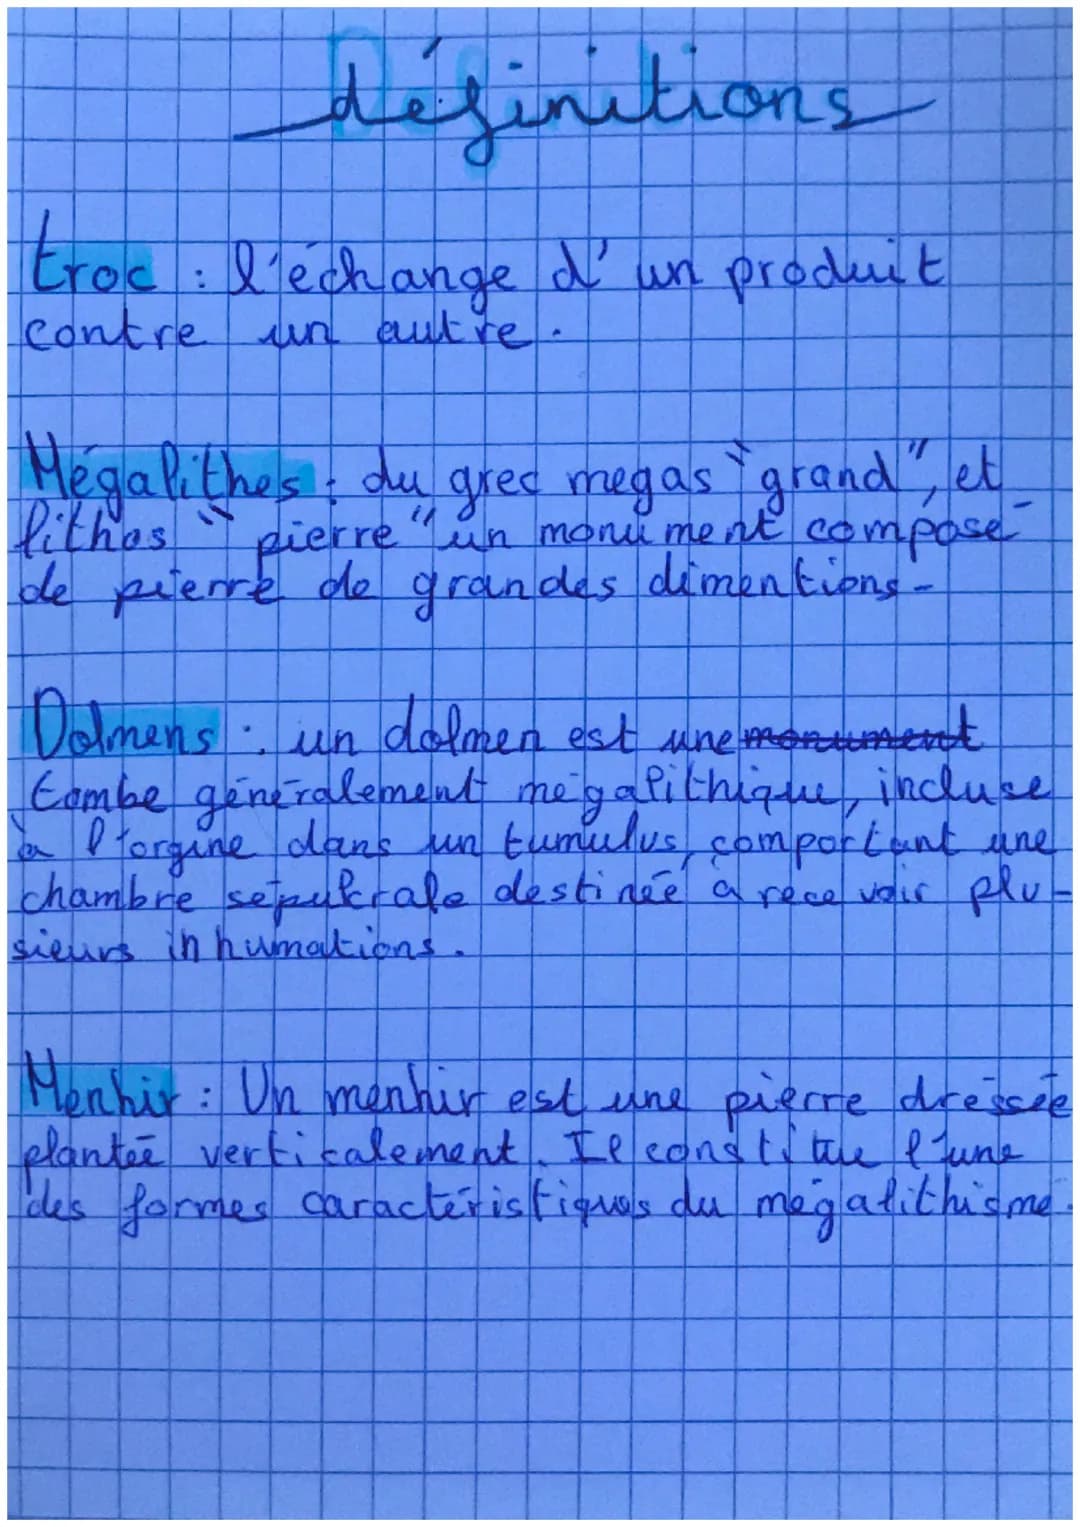 définitions
troc : l'échange d'un produit
contre un autre.
Mégalithes : du grec megas "grand", et
lithos "pierre" un monument composé
de pierre de grandes dimentions.
Dolmens : un dolmen est une monument
tombe généralement mégalithique, incluse
à l'orgine dans un tumulus, comportant une
chambre sépulcrale destinée à recevoir plu-
sieurs inhumations.
Menhir : Un menhir est une pierre dressée
plantée verticalement. Il constitue l'une
des formes caractéristiques du mégalithisme.